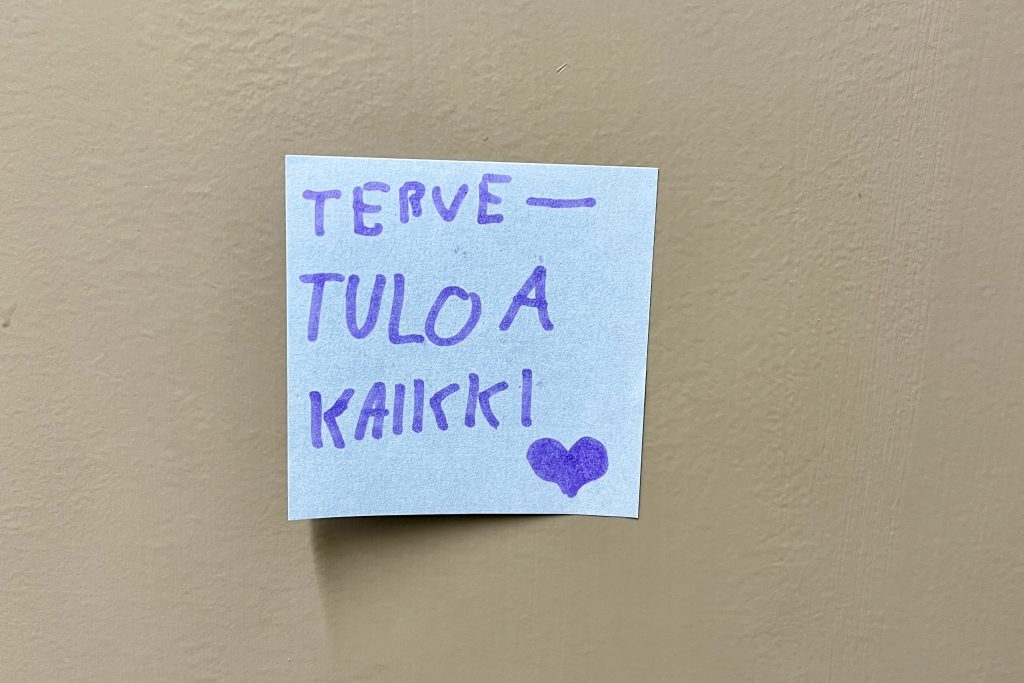 TERVE—
TULO A
KAIKKI